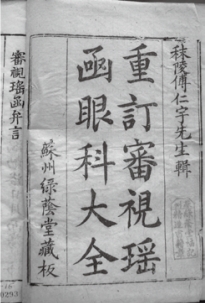 秣陵傅仁宇先生輯
重訂審視瑶
函眼科大全
蘇州緑蔭堂藏板
審視瑶函弁言
0293